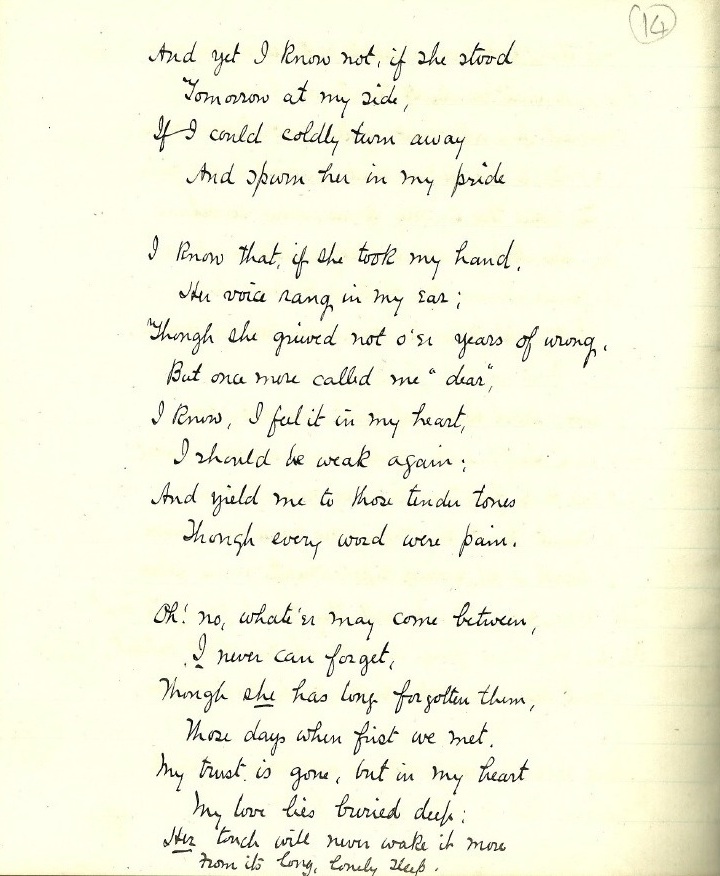 14
And yet I know not, if she stood
Tomorrow at my side,
If I could coldly turn away
And spurn her in my pride
I know that, if she took my hand,
Her voice rang in my ear;
Though she grieved not o'er years of wrong,
But once more called me "dear",
I know, I feel it in my heart,
I should be weak again;
And yield me to those tender tones
Though every word were pain.
Oh! no, whate'er may come between,
I never can forget,
Though she has long forgotten them,
Those days when first we met.
My trust is gone, but in my heart
My love lies buried deep;
Her touch will never wake it more
From its long, lonely sleep.